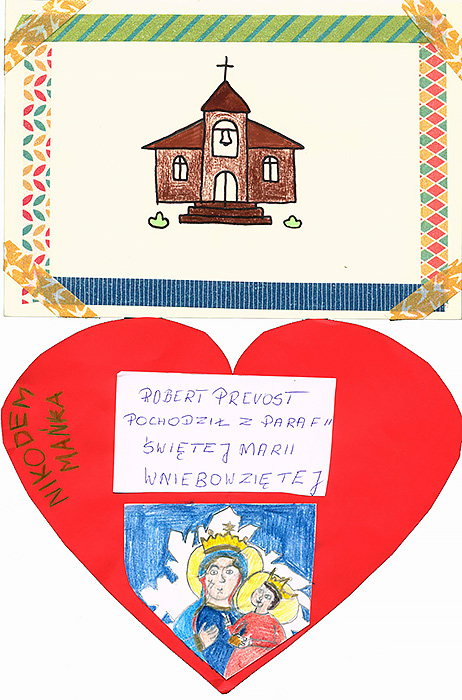 ROBERT PREVOST
POCHODZIŁ Z PARAFII
ŚWIĘTEJ MARII
WNIEBOWZIĘTEJ
NIKODEM
MAŃKA